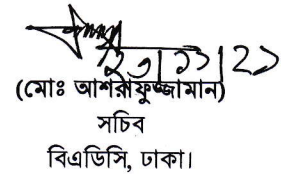 ২৩|১১|২১
(মোঃ আশরাফুজ্জামান)
সচিব
বিএডিসি, ঢাকা।